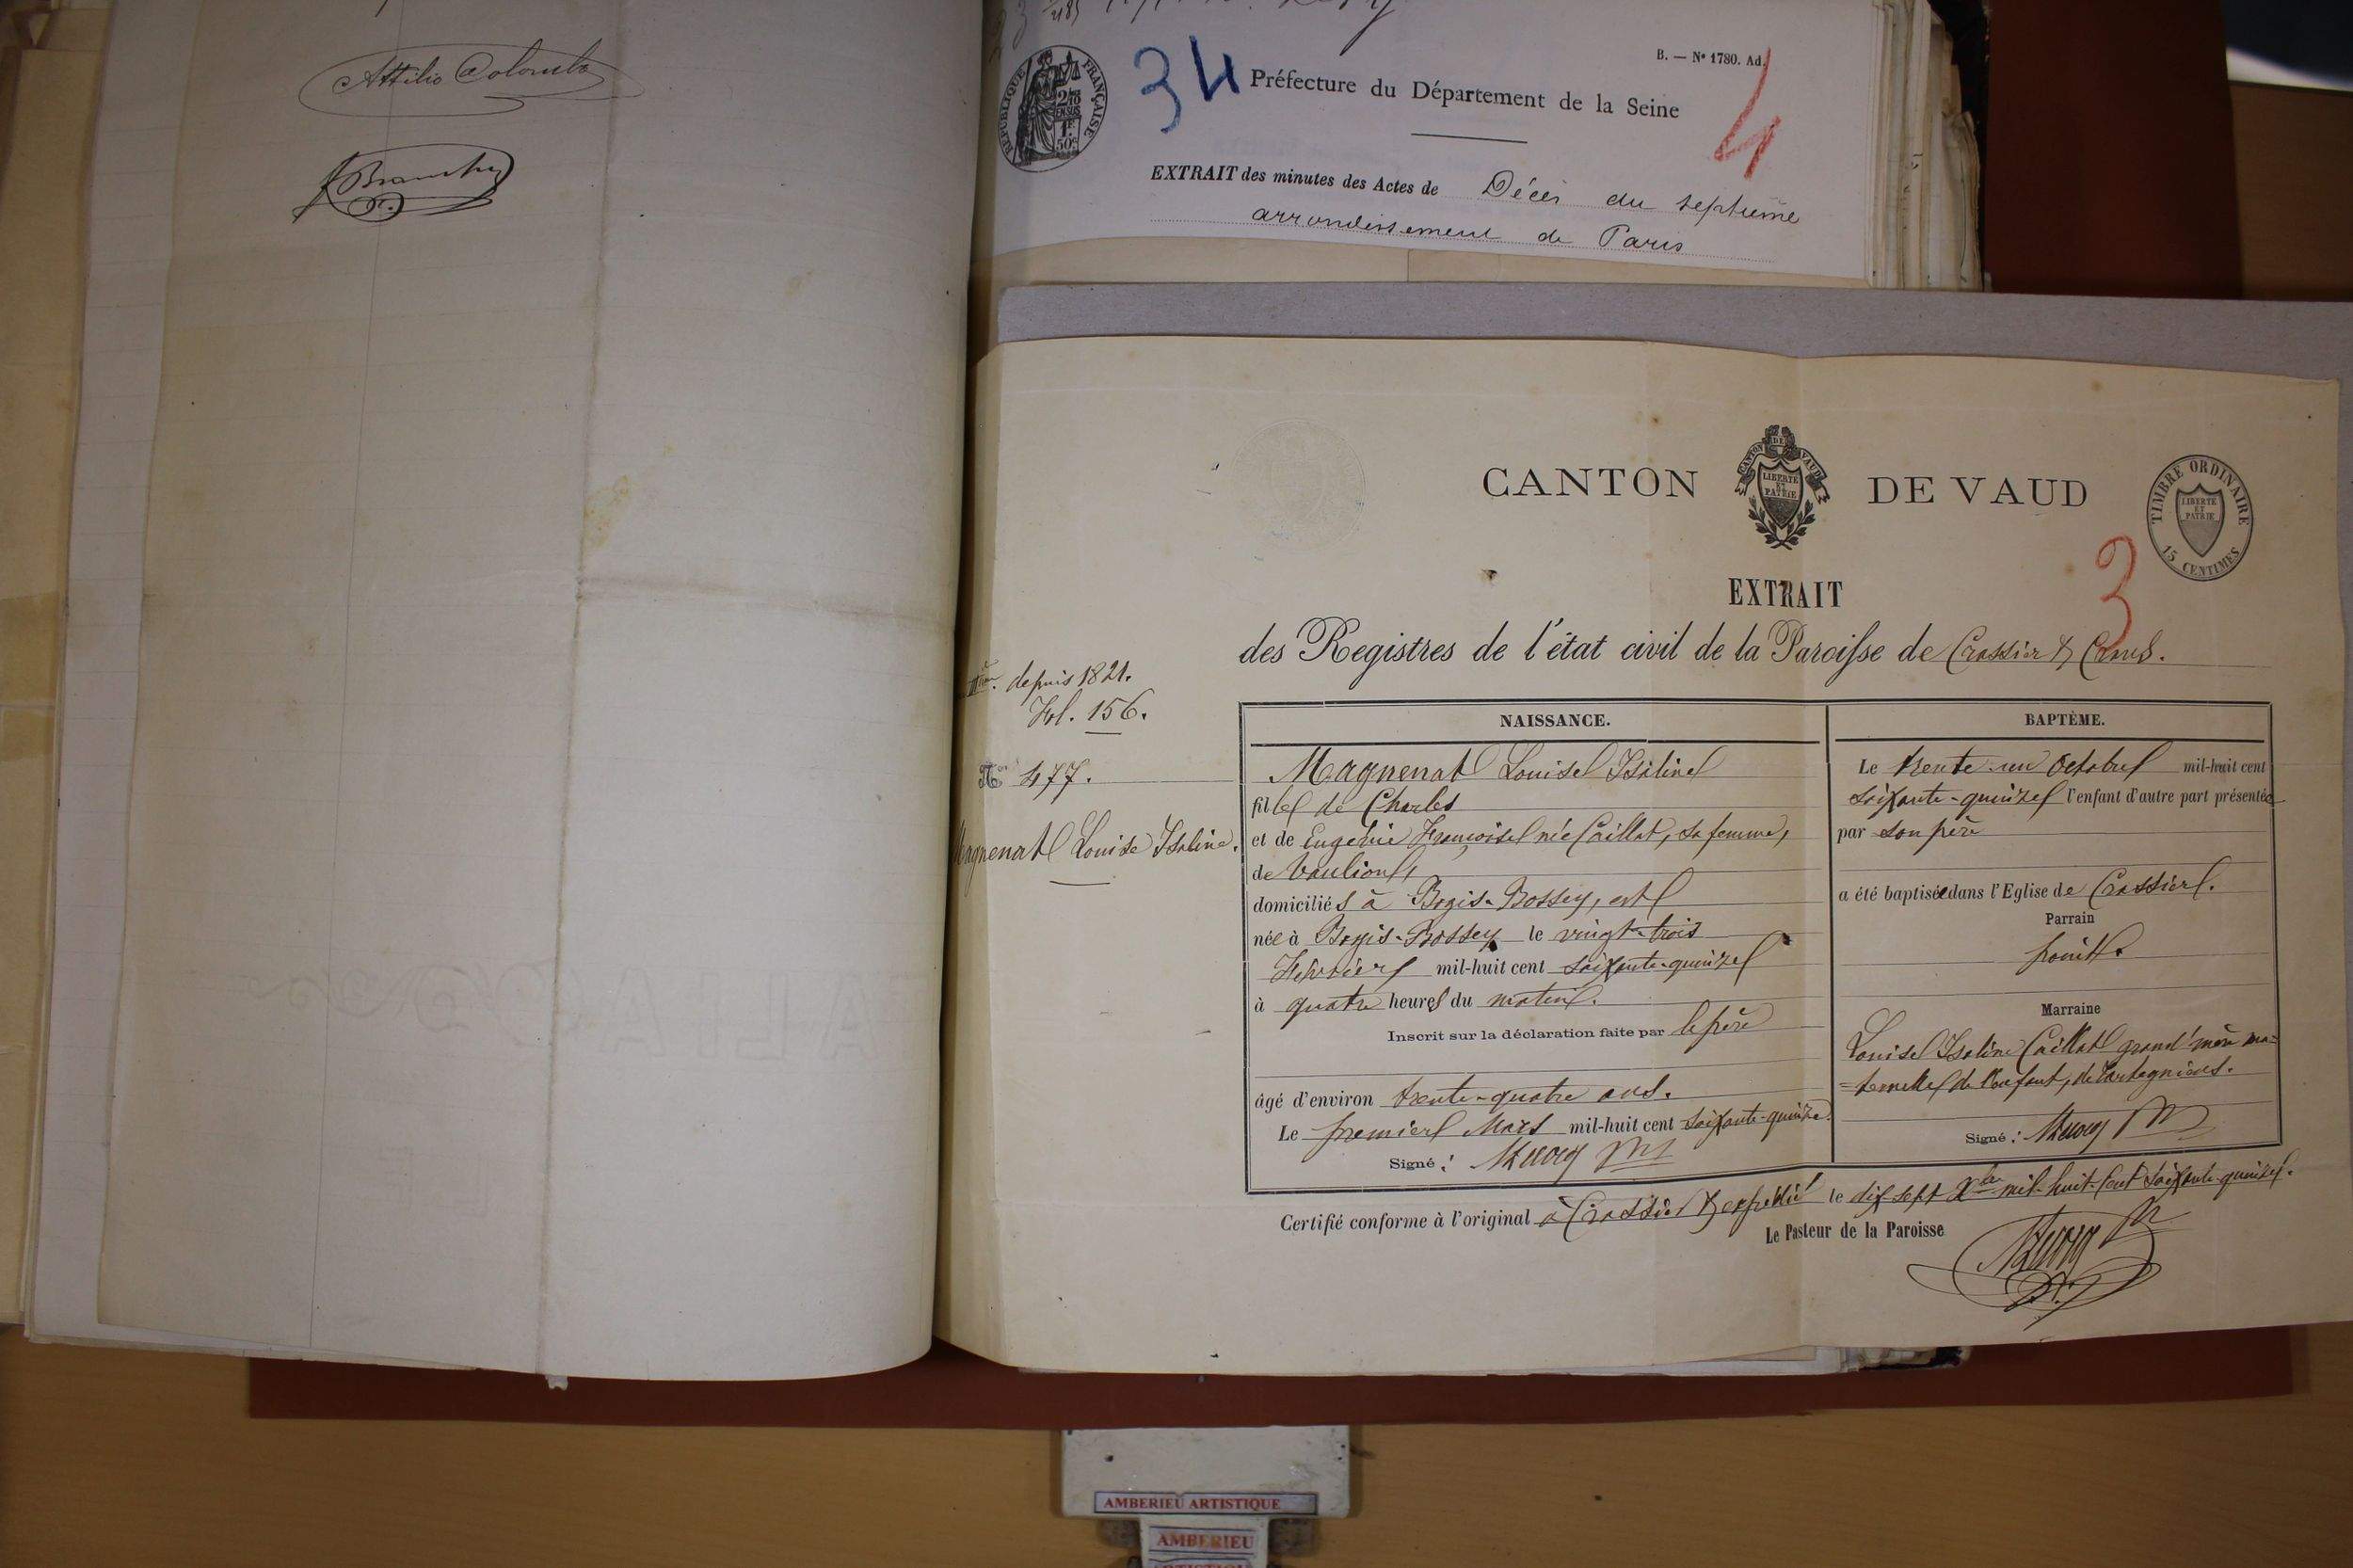 Attilio Colombo
RÉPUBLIQUE FRANÇAISE
34
B. — Nº 1780. Ad.
4
Préfecture du Département de la Seine
EXTRAIT des minutes des Actes de Décès du septième
arrondissement de Paris
CANTON DE VAUD
CANTON DE VAUD
LIBERTÉ ET PATRIE
TIMBRE ORDINAIRE
LIBERTÉ ET PATRIE
15 CENTIMES
3
EXTRAIT
des Registres de l'état civil de la Paroisse de Crassier & Crans.
depuis 1821.
Fol. 156.
Nº 477.
Magnenat Louise Isaline.
NAISSANCE.
Magnenat Louise Isaline
fille de Charles
et de Eugénie Françoise née Caillat, sa femme,
de Vaulion,
domiciliés à Bogis-Bossey, est
née à Bogis-Bossey le vingt-trois
Février mil-huit cent soixante-quinze
à quatre heures du matin.
Inscrit sur la déclaration faite par le père
âgé d'environ trente-quatre ans.
Le premier Mars mil-huit cent soixante-quinze.
Signé:
BAPTÈME.
Le trente-un Octobre mil-huit cent
soixante-quinze l'enfant d'autre part présentée
par son père
a été baptisée dans l'Eglise de Crassier.
Parrain
point.
Marraine
Louise Isaline Caillat grand'mère ma=
=ternelle de l'enfant, de Tartegnins.
Signé:
Certifié conforme à l'original à Crassier & expédié le dix sept Xbre mil-huit-cent soixante-quinze.
Le Pasteur de la Paroisse
AMBERIEU ARTISTIQUE
AMBERIEU
ARTISTIQUE